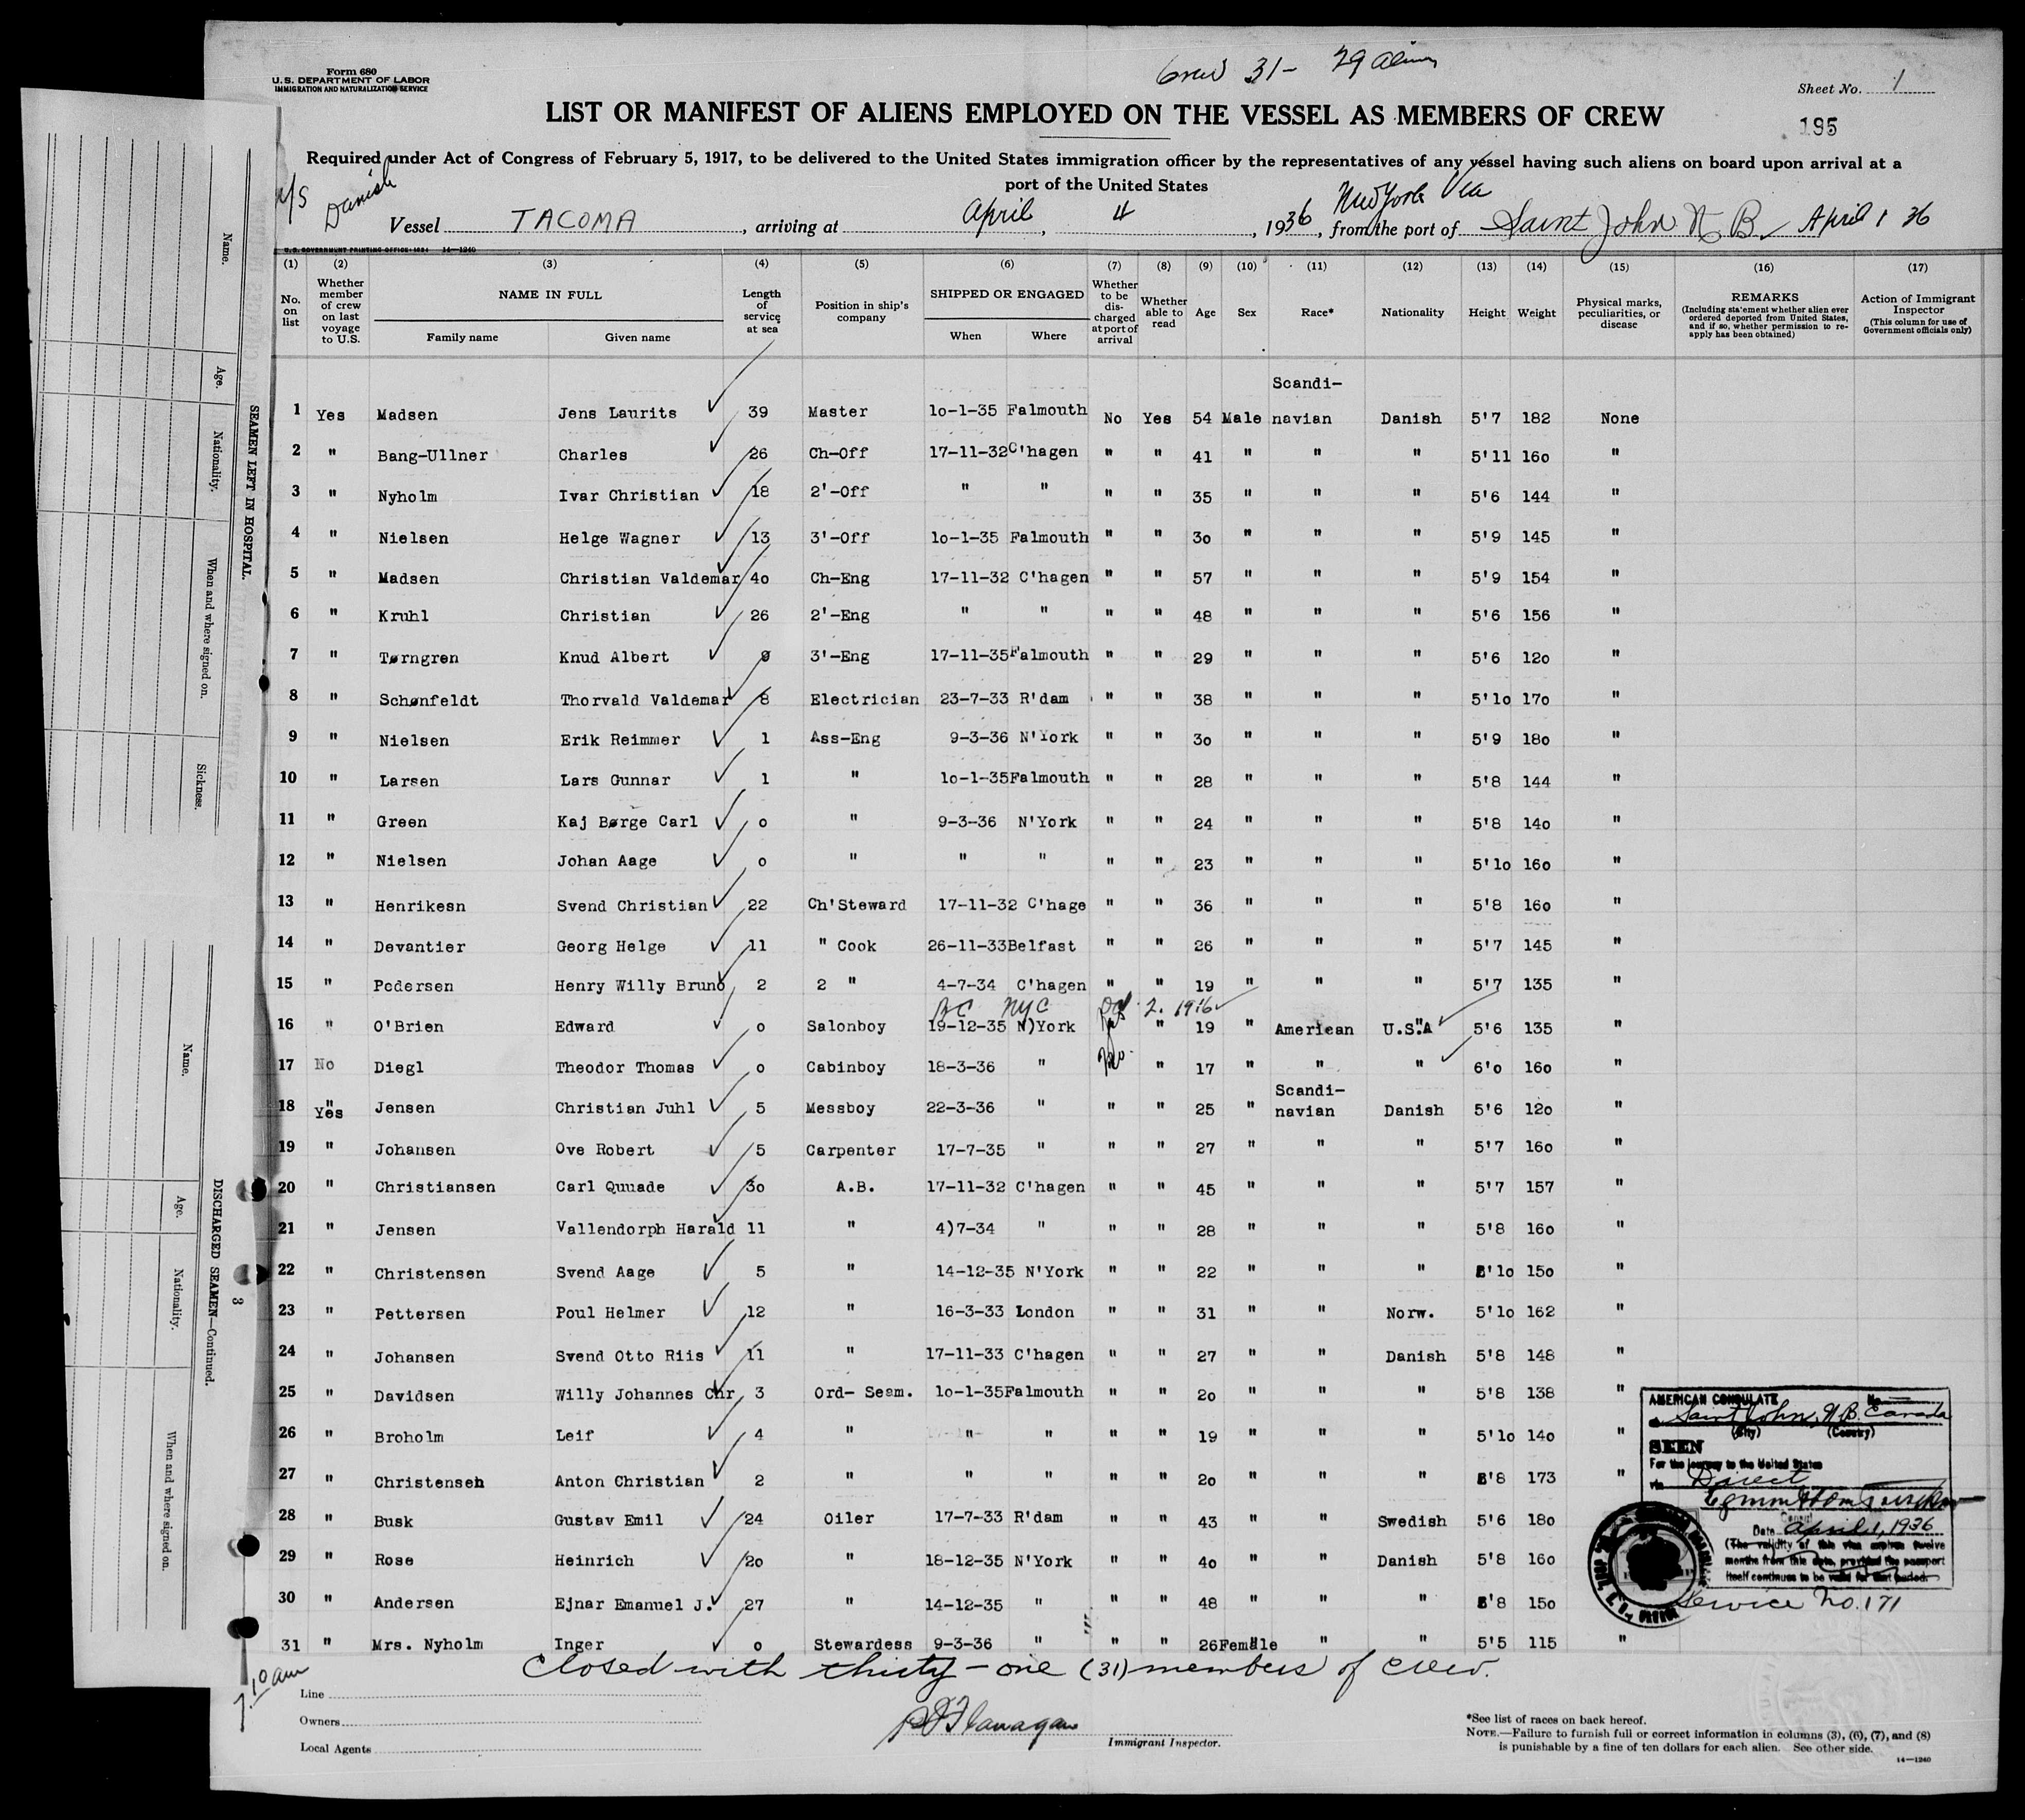 Form 680
U. S. DEPARTMENT OF LABOR
IMMIGRATION AND NATURALIZATION SERVICE
Crew 31- 29 aliens
Sheet No. 1
LIST OR MANIFEST OF ALIENS EMPLOYED ON THE VESSEL AS MEMBERS OF CREW
195
Required under Act of Congress of February 5, 1917, to be delivered to the United States immigration officer by the representatives of any vessel having such aliens on board upon arrival at a
port of the United States
Danish Vessel TACOMA, arriving at April 4, 1936, from the port of New York Via Saint John N B April 1 36
U. S. GOVERNMENT PRINTING OFFICE: 1934 14—1240
(1) (2) (3) (4) (5) (6) (7) (8) (9) (10) (11) (12) (13) (14) (15) (16) (17)
No. on list
Whether member of crew on last voyage to U.S.
NAME IN FULL
Family name Given name
Length of service at sea
Position in ship's company
SHIPPED OR ENGAGED
When Where
Whether to be discharged at port of arrival
Whether able to read
Age Sex Race* Nationality Height Weight
Physical marks, peculiarities, or disease
REMARKS
(Including statement whether alien ever ordered deported from United States, and if so, whether permission to reapply has been obtained)
Action of Immigrant Inspector
(This column for use of Government officials only)
Scandi-
1 Yes Madsen Jens Laurits 39 Master 10-1-35 Falmouth No Yes 54 Male navian Danish 5'7 182 None
2 " Bang-Ullner Charles 26 Ch-Off 17-11-32 C'hagen " " 41 " " " 5'11 160 "
3 " Nyholm Ivar Christian 18 2'-Off " " " " 35 " " " 5'6 144 "
4 " Nielsen Helge Wagner 13 3'-Off 10-1-35 Falmouth " " 30 " " " 5'9 145 "
5 " Madsen Christian Valdemar 40 Ch-Eng 17-11-32 C'hagen " " 57 " " " 5'9 154 "
6 " Kruhl Christian 26 2'-Eng " " " " 48 " " " 5'6 156 "
7 " Tørngren Knud Albert 9 3'-Eng 17-11-35 Falmouth " " 29 " " " 5'6 120 "
8 " Schønfeldt Thorvald Valdemar 8 Electrician 23-7-33 R'dam " " 38 " " " 5'10 170 "
9 " Nielsen Erik Reimmer 1 Ass-Eng 9-3-36 N'York " " 30 " " " 5'9 180 "
10 " Larsen Lars Gunnar 1 " 10-1-35 Falmouth " " 28 " " " 5'8 144 "
11 " Green Kaj Børge Carl 0 " 9-3-36 N'York " " 24 " " " 5'8 140 "
12 " Nielsen Johan Aage 0 " " " " " 23 " " " 5'10 160 "
13 " Henrikesn Svend Christian 22 Ch'Steward 17-11-32 C'hage " " 36 " " " 5'8 160 "
14 " Devantier Georg Helge 11 " Cook 26-11-33 Belfast " " 26 " " " 5'7 145 "
15 " Pedersen Henry Willy Bruno 2 2 " 4-7-34 C'hagen " " 19 " " " 5'7 135 "
NYC Oct. 2. 1916
16 " O'Brien Edward 0 Salonboy 19-12-35 N)York yes " 19 " American U.S.A 5'6 135 "
17 No Diegl Theodor Thomas 0 Cabinboy 18-3-36 " No. " 17 " " " 6'0 160 "
Scandi-
18 " Yes Jensen Christian Juhl 5 Messboy 22-3-36 " " " 25 " navian Danish 5'6 120 "
19 " Johansen Ove Robert 5 Carpenter 17-7-35 " " " 27 " " " 5'7 160 "
20 " Christiansen Carl Quuade 30 A.B. 17-11-32 C'hagen " " 45 " " " 5'7 157 "
21 " Jensen Vallendorph Harald 11 " 4)7-34 " " " 28 " " " 5'8 160 "
22 " Christensen Svend Aage 5 " 14-12-35 N'York " " 22 " " " 5'10 150 "
23 " Pettersen Poul Helmer 12 " 16-3-33 London " " 31 " " Norw. 5'10 162 "
24 " Johansen Svend Otto Riis 11 " 17-11-33 C'hagen " " 27 " " Danish 5'8 148 "
25 " Davidsen Willy Johannes Chr 3 Ord- Seam. 10-1-35 Falmouth " " 20 " " " 5'8 138 "
26 " Broholm Leif 4 " " " " " 19 " " " 5'10 140 "
27 " Christensen Anton Christian 2 " " " " " 20 " " " 5'8 173 "
28 " Busk Gustav Emil 24 Oiler 17-7-33 R'dam " " 43 " " Swedish 5'6 180 "
29 " Rose Heinrich 20 " 18-12-35 N'York " " 40 " " Danish 5'8 160 "
30 " Andersen Ejnar Emanuel J. 27 " 14-12-35 " " " 48 " " " 5'8 150 "
31 " Mrs. Nyholm Inger 0 Stewardess 9-3-36 " " " 26 Female " " 5'5 115 "
AMERICAN CONSULATE No.
at Saint John, N.B. Canada
(City) (Country)
SEEN
For the journey to the United States
via Direct
Consul
Date April 1, 1936
(The validity of this visa expires twelve
months from this date, provided the passport
itself continues to be valid for that period.
Service No. 171
Closed with thirty-one (31) members of crew.
7.10 am
Line
Owners
Local Agents
Flanagan
Immigrant Inspector.
*See list of races on back hereof.
NOTE.—Failure to furnish full or correct information in columns (3), (6), (7), and (8)
is punishable by a fine of ten dollars for each alien. See other side.
14—1240
SEAMEN LEFT IN HOSPITAL.
Name.
Age.
Nationality.
When and where signed on.
Sickness.
DISCHARGED SEAMEN—Continued.
3
Name.
Age.
Nationality.
When and where signed on.